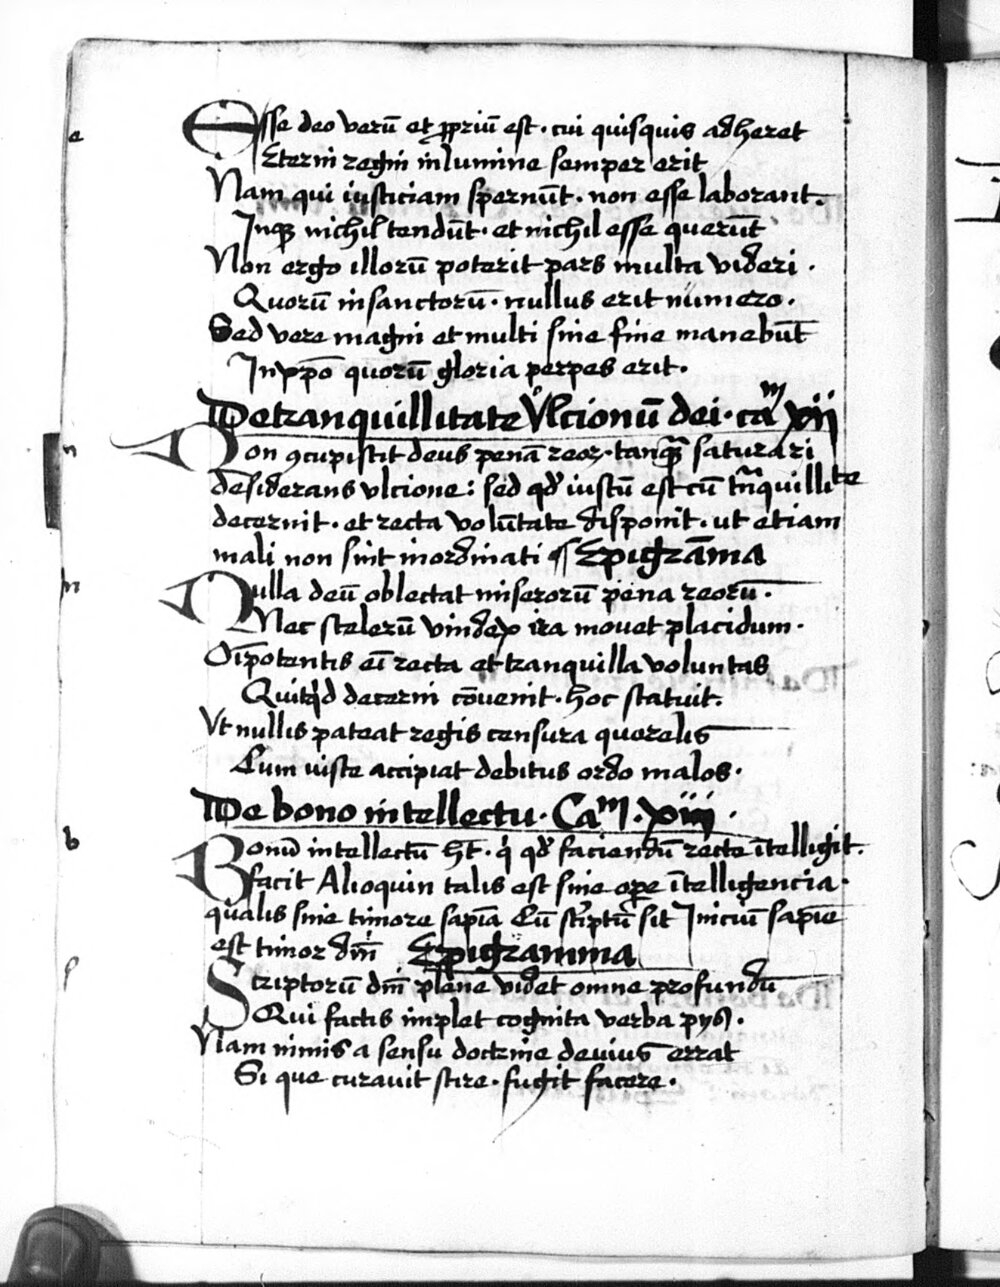 e
Esse deo verū et ꝓpriū est · cui quisquis adheret
Eterni regni in lumine semper erit
Nam qui iusticiam spernūt · non esse laborant ·
Inqꝫ nichil tendūt · et nichil esse querūt
Non ergo illorū poterit pars multa videri ·
Quorū in sanctorū · nullus erit numero ·
Sed vere magni et multi sine fine manebūt
In xp̄o quorū gloria perpes erit ·
De tranquillitate Vlcionū dei · caᵐ xii
n
Non ꝯcupistit deus penā reoꝝ · tanqꝫ saturari
desiderans vlcione : sed qd̕ iustū est cū trāquillite
decernit · et recta volūtate disponit · ut etiam
mali non sint inordinati ¶ Epigrāma
n
Nulla deū oblectat miserorū pena reorū ·
Nec scelerū vindex ira movet placidum ·
Oīpotentis eī recta et tranquilla voluntas
Quitqͥd decerni cōuenit · hoc statuit .
Vt nullis pateat regis censura querelis
Cum iuste accipiat debitus ordo malos ·
De bono intellectu · Caᵐ · xiii ·
b
Bonū intellectū hꝫ̄ · qͥ qd̕ faciendū recte ītelligit ·
facit Alioquin talis est sine oꝑe ītelligencia ·
qualis sine timore sapīa Cū scͥptū sit Iniciū sapīe
est timor dn̄i Epigramma
s
Scriptorū dn̄i plene videt omne profundū
Qui factis implet cognita verba pijs ·
Nam nimis a sensu doctrine devius errat
Si que curavit scire · fugit facere ·